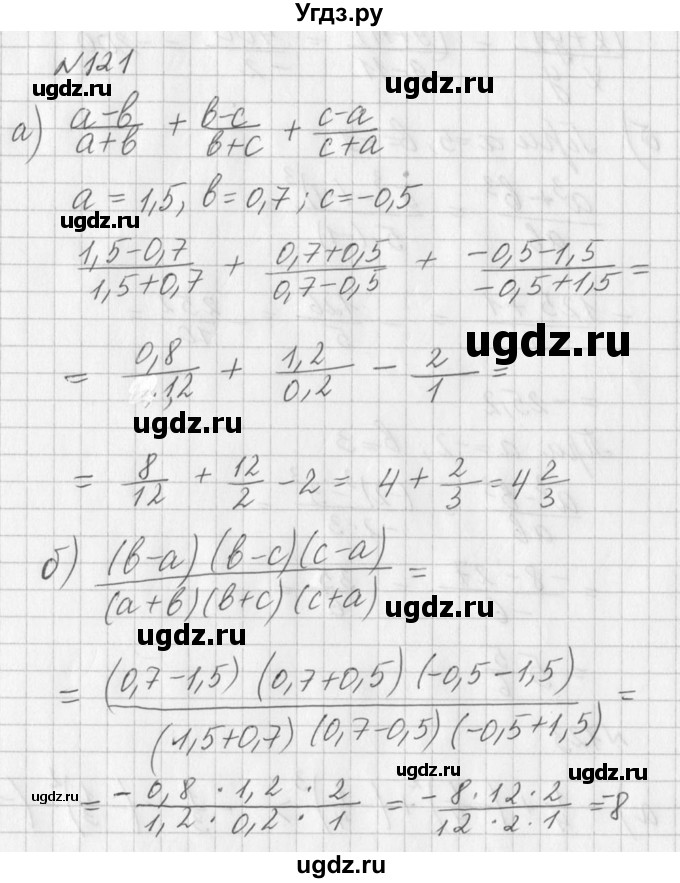 Угдз.ру
№121
ugdz.ru ugdz.ru
а) (a-в)/(a+в) + (в-c)/(в+c) + (c-a)/(c+a)
a = 1,5, в = 0,7; c = -0,5
ugdz.ru
(1,5-0,7)/(1,5+0,7) + (0,7+0,5)/(0,7-0,5) + (-0,5-1,5)/(-0,5+1,5) =
ugdz.ru
= 0,8/12 + 1,2/0,2 - 2/1 =
ugdz.ru
= 8/12 + 12/2 - 2 = 4 + 2/3 = 4 2/3
б) ((в-a)(в-c)(c-a))/((a+в)(в+c)(c+a)) =
ugdz.ru ugdz.ru
= ((0,7-1,5)(0,7+0,5)(-0,5-1,5))/((1,5+0,7)(0,7-0,5)(-0,5+1,5)) =
ugdz.ru ugdz.ru ugdz.ru
= (-0,8·1,2·2)/(1,2·0,2·1) = (-8·12·2)/(12·2·1) = -8
ugdz.ru